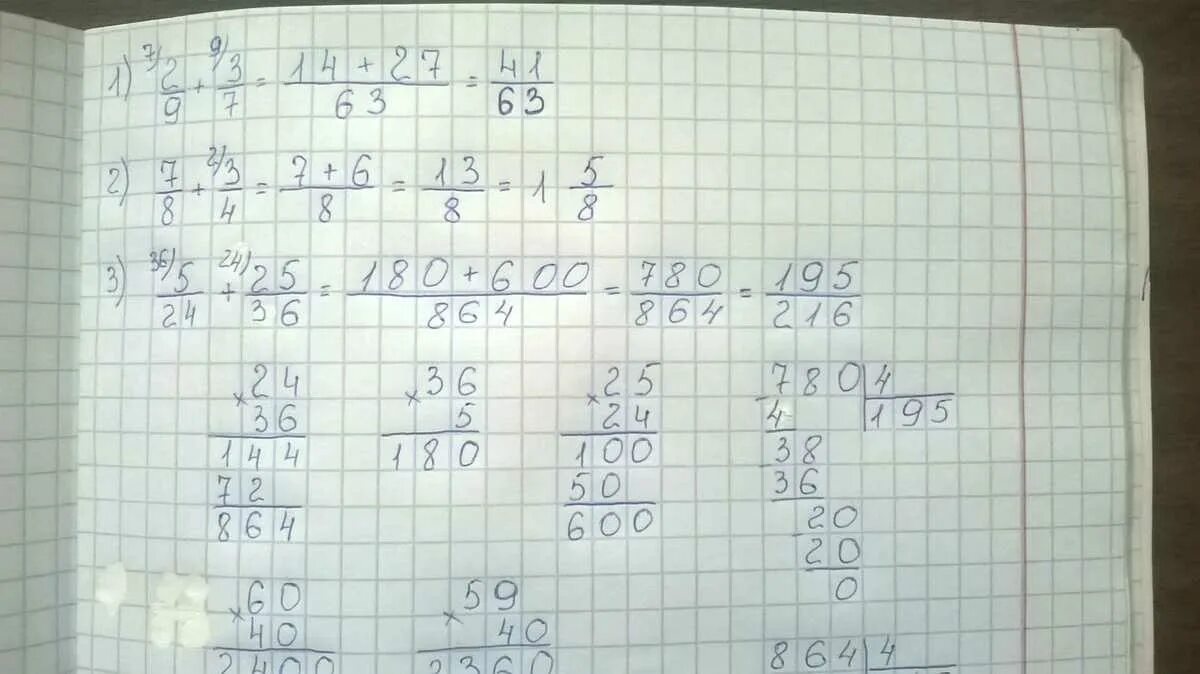 1) 7/ 2/9 + 9/ 3/7 = 14 + 27 / 63 = 41/63
2) 7/8 + 2/ 3/4 = 7 + 6 / 8 = 13/8 = 1 5/8
3) 36/ 5/24 + 24/ 25/36 = 180 + 600 / 864 = 780/864 = 195/216
× 24
36
144
72
864
× 36
5
180
× 25
24
100
50
600
780 | 4
4 | 195
38
36
20
20
0
× 60
40
2400
× 59
40
2360
864 | 4